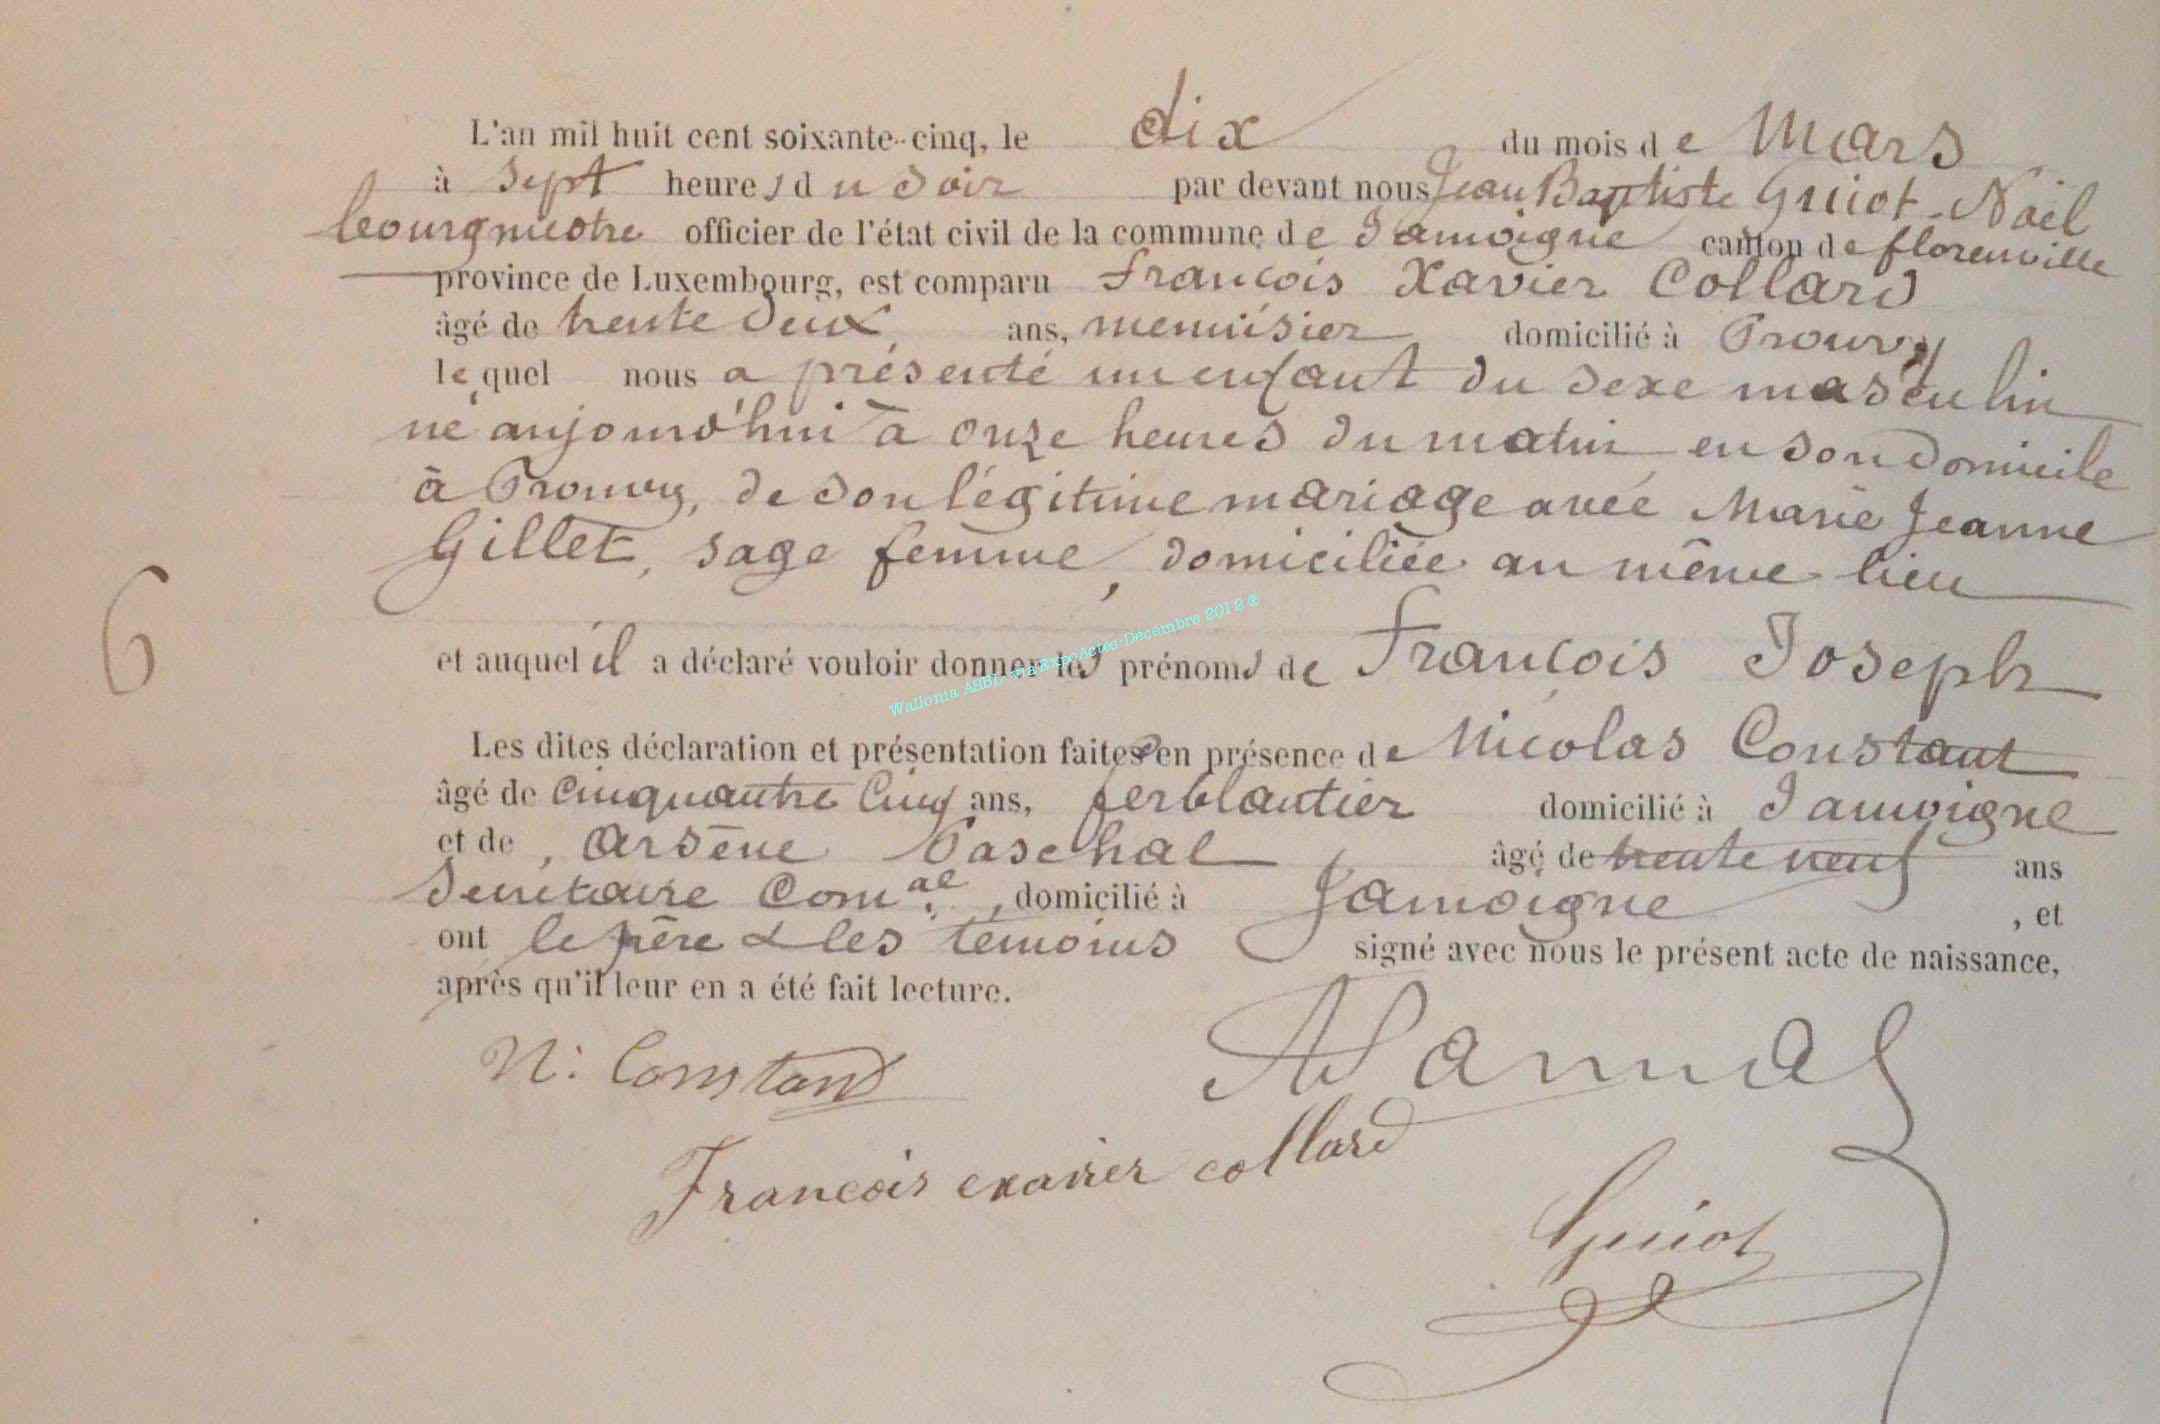 L'an mil huit cent soixante-cinq, le dix du mois de Mars
à sept heures du soir par devant nous Jean Baptiste Guiot-Noël
bourgmestre officier de l'état civil de la commune de Jamoigne canton de florenville
province de Luxembourg, est comparu François Xavier Collard
âgé de trente deux ans, menuisier domicilié à Prouvy
lequel nous a présenté un enfant du sexe masculin
né aujourd'hui à onze heures du matin en son domicile
à Prouvy, de son légitime mariage avec Marie Jeanne
Gillet, sage femme, domiciliée au même lieu
6
et auquel il a déclaré vouloir donner les prénoms de François Joseph
Wallonia ASBL Décembre 2012 ®
Les dites déclaration et présentation faites en présence de Nicolas Constant
âgé de cinquante cinq ans, ferblantier domicilié à Jamoigne
et de, Arsène Paschal âgé de trente neuf ans
Secrétaire Com.al, domicilié à Jamoigne, et
ont le père & les témoins signé avec nous le présent acte de naissance,
après qu'il leur en a été fait lecture.
N: Constand
François exavier collard
Guiot